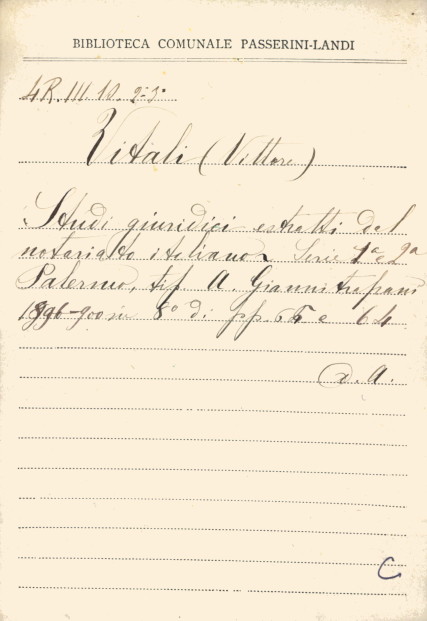 BIBLIOTECA COMUNALE PASSERINI-LANDI
4R. III. 10. 2-3°
Vitali (Vittore)
Studi giuridici estratti dal
notariato italiano Serie 1ª e 2ª
Palermo, tip. A. Giannitrapani
1896-900 in 8° di pp. 65 e 64
D. A.
C